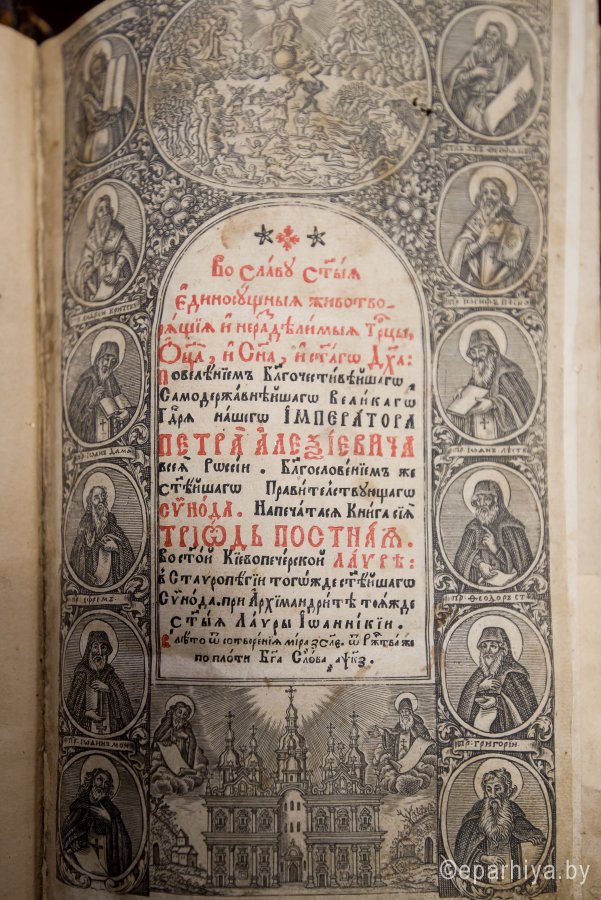 Во Славу Ст҃ыѧ
Єдиносꙋщныѧ животво-
рѧщїѧ и нераздѣлимыѧ Трⷪ҇цы,
Ѻц҃а, и Сн҃а, и ст҃агѡ Дх҃а:
Повелѣнїемъ Бл҃гочестивѣйшагѡ
Самодержавнѣйшагѡ Великагѡ
Гдⷭ҇рѧ нашегѡ ІМПЕРАТОРА
ПЕТРА АЛЕѮІЕВИЧА
всеѧ Рѡссїи. Бл҃гословенїемъ же
ст҃ѣйшагѡ Правителствꙋющагѡ
СѴНОДА. Напечатасѧ Книга сїѧ
ТРІѠДЬ ПОСТНАѦ.
Во ст҃ой Кїевопечерской ЛАѴРѢ:
в Ставропѣгїи тогѡжде ст҃ѣйшагѡ
Сѵнода. при Архїмандритѣ тоѧжде
Ст҃ыѧ Лаѵры Іѡанникїи.
В лѣто ѿ сотворенїѧ мира ҂зсле. ѿ Ржⷭ҇тва же
по плоти Бг҃а Слова, ҂аѱкз.
пр. андреи критск
пр. іѡанъ дама
пр. ефремъ
пр. іѡаннъ мон
пр. іѡсифъ пѣсно
пр. іѡанъ лѣств
пр. ѳеодоръ ст
пр. григорїи
©eparhiya.by